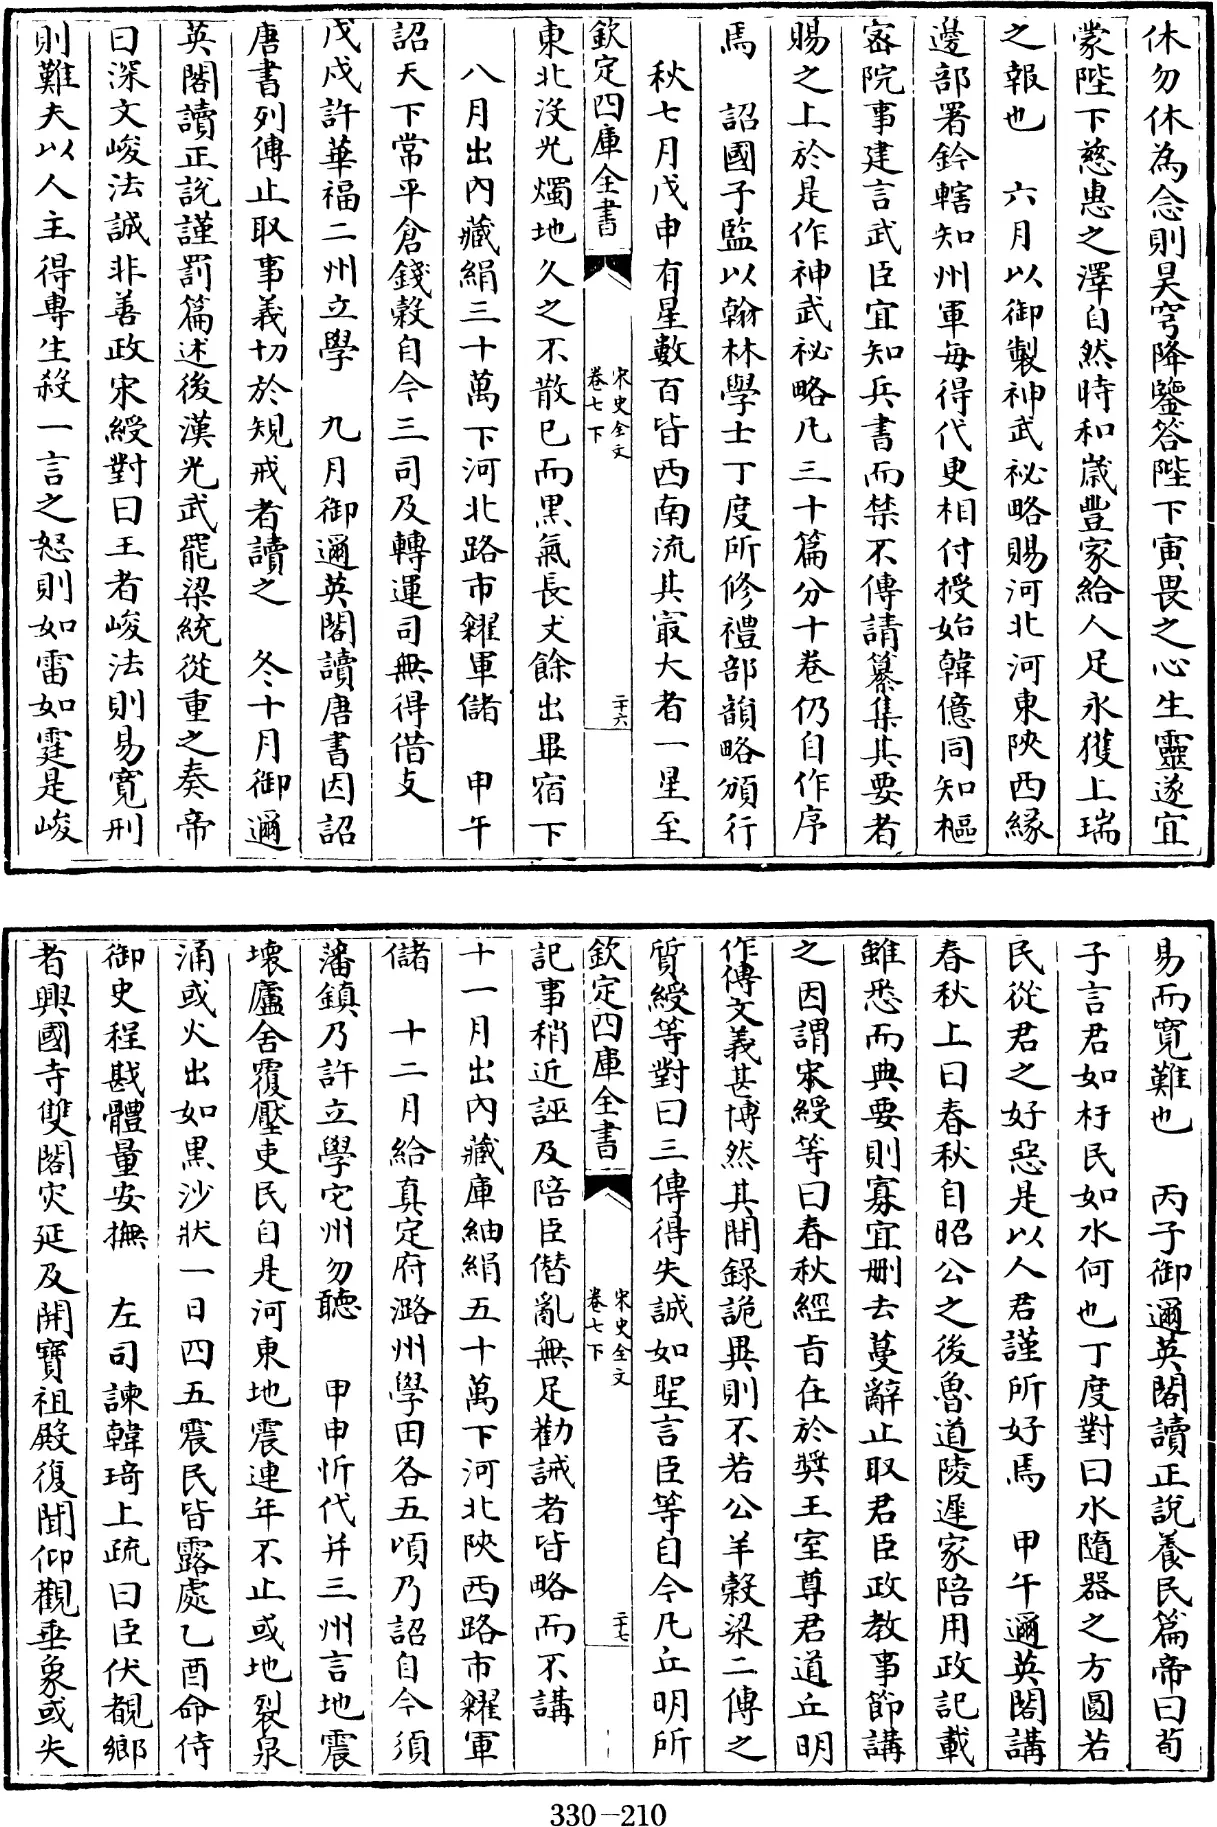 休勿休為念則昊穹降鑒答陛下寅畏之心生靈遂宜
蒙陛下慈惠之澤自然時和歲豐家給人足永獲上瑞
之報也　六月以御製神武祕略賜河北河東陝西緣
邊部署鈐轄知州軍每得代更相付授始韓億同知樞
密院事建言武臣宜知兵書而禁不傳請纂集其要者
賜之上於是作神武祕略凡三十篇分十卷仍自作序
焉　詔國子監以翰林學士丁度所修禮部韻略頒行
秋七月戊申有星數百皆西南流其㝡大者一星至
欽定四庫全書
宋史全文
卷七下
二十六
東北沒光燭地久之不散已而黑氣長丈餘出畢宿下
八月出內藏絹三十萬下河北路市糴軍儲　甲午
詔天下常平倉錢穀自今三司及轉運司無得借支
戊戌許華福二州立學　九月御邇英閣讀唐書因詔
唐書列傳止取事義切於規戒者讀之　冬十月御邇
英閣讀正說謹罰篇述後漢光武罷梁統從重之奏帝
曰深文峻法誠非善政宋綬對曰王者峻法則易寬刑
則難夫以人主得專生殺一言之怒則如雷如霆是峻
易而寬難也　丙子御邇英閣讀正說養民篇帝曰荀
子言君如杅民如水何也丁度對曰水隨器之方圓若
民從君之好惡是以人君謹所好焉　甲午邇英閣講
春秋上曰春秋自昭公之後魯道陵遲家陪用政記載
雖悉而典要則寡宜刪去蔓辭止取君臣政教事節講
之因謂宋綬等曰春秋經旨在於奬王室尊君道丘明
作傳文義甚博然其間錄詭異則不若公羊穀梁二傳之
質綬等對曰三傳得失誠如聖言臣等自今凡丘明所
欽定四庫全書
宋史全文
卷七下
二十七
記事稍近誣及陪臣僭亂無足勸誡者皆略而不講
十一月出內藏庫紬絹五十萬下河北陝西路市糴軍
儲　十二月給真定府潞州學田各五頃乃詔自今須
藩鎮乃許立學它州勿聽　甲申忻代并三州言地震
壞廬舍覆壓吏民自是河東地震連年不止或地裂泉
涌或火出如黑沙狀一日四五震民皆露處乙酉命侍
御史程戡體量安撫　左司諫韓琦上疏曰臣伏覩鄉
者興國寺雙閣灾延及開寶祖殿復聞仰觀垂象或失
330-210